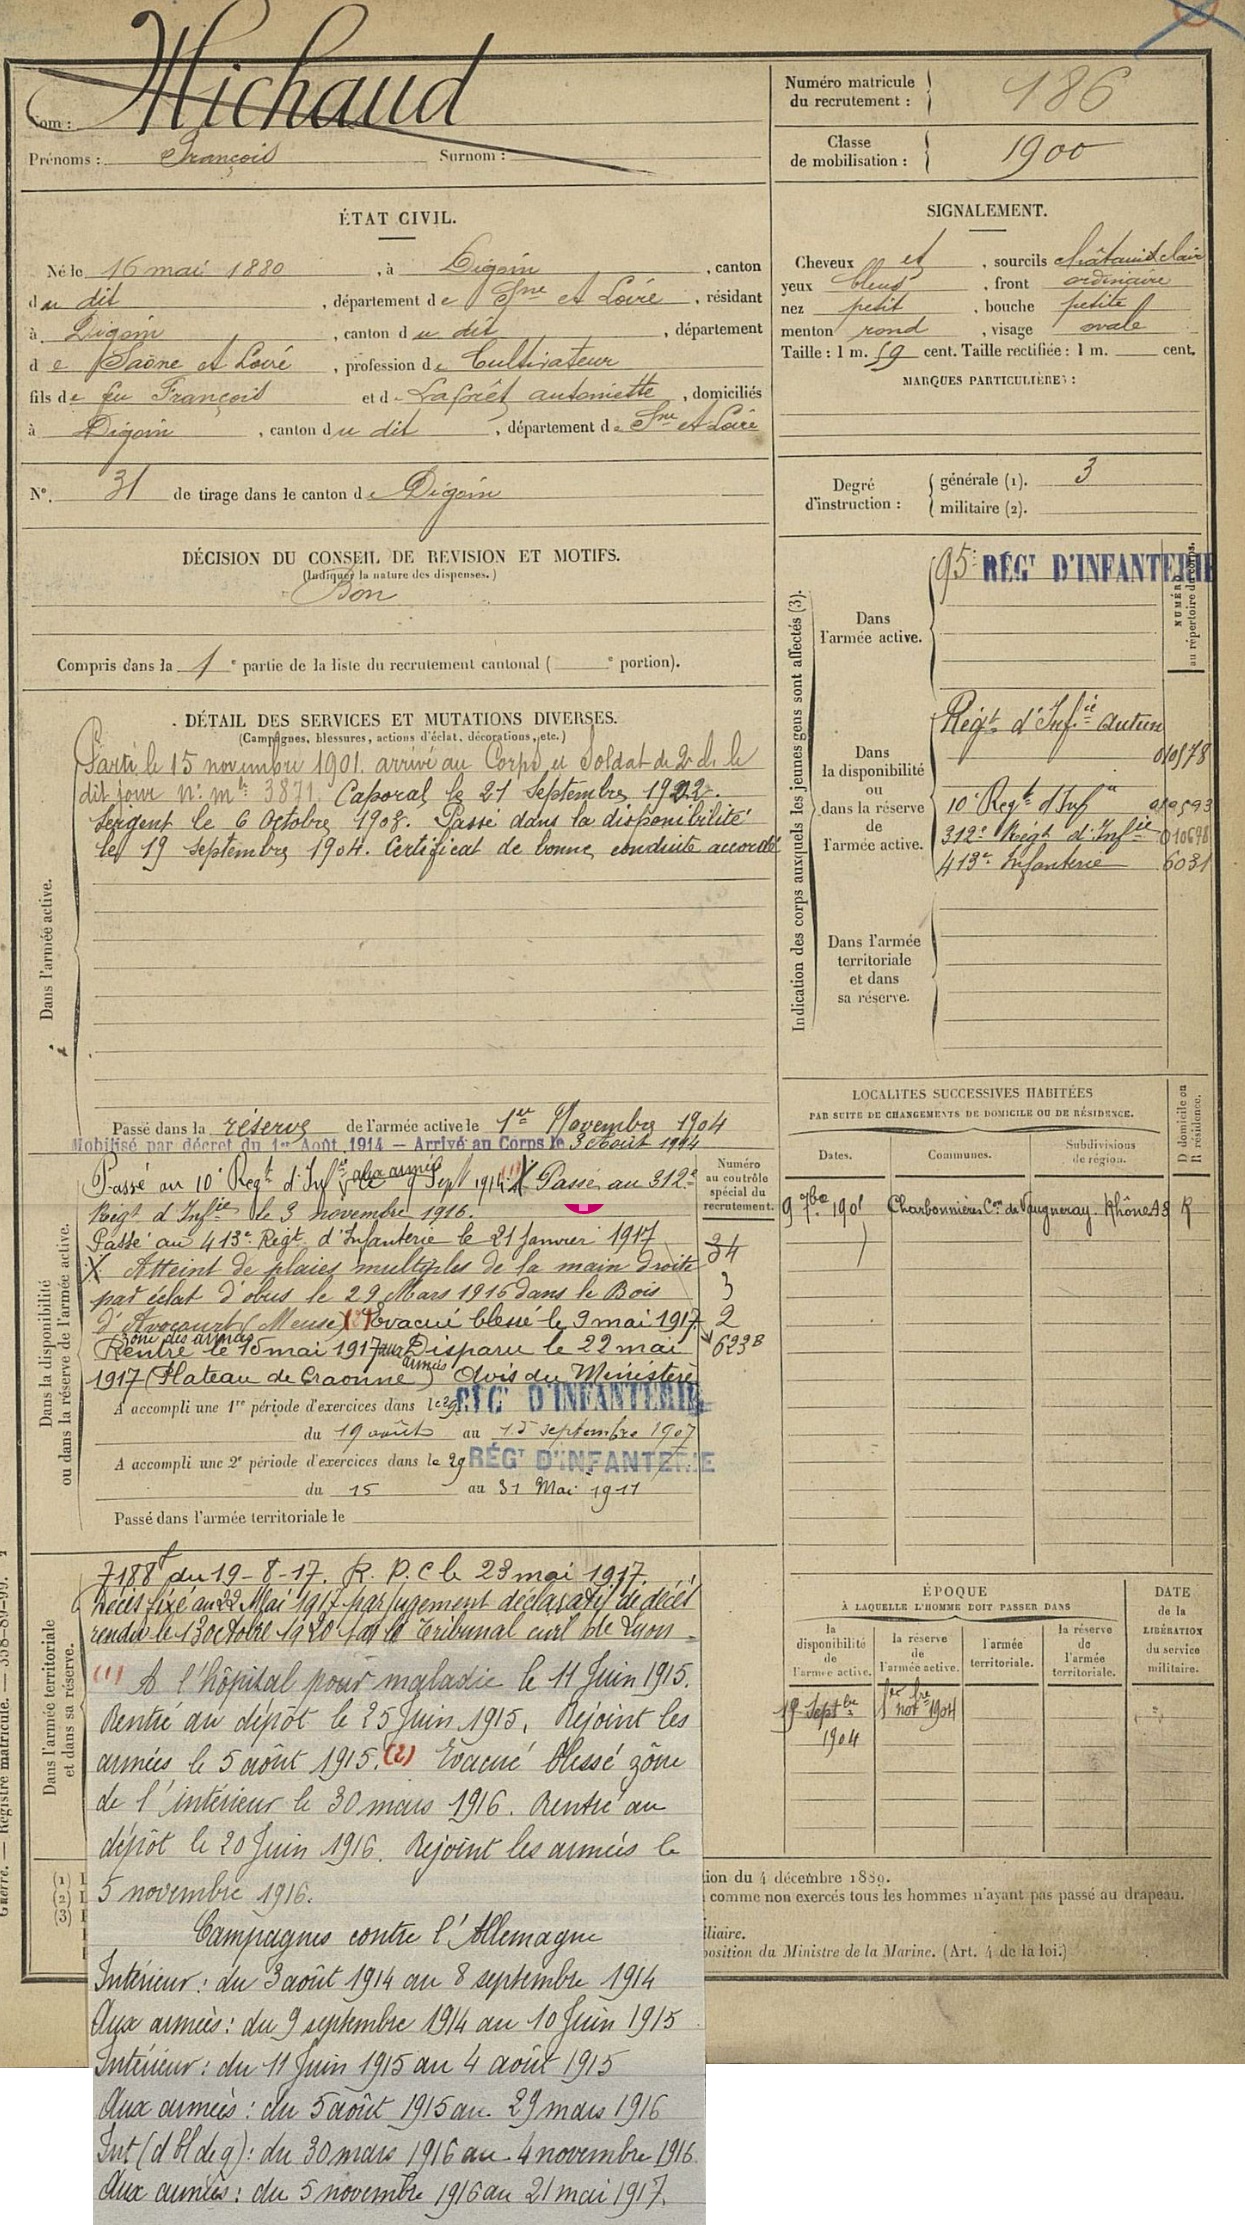 Nom : Michaud
Prénoms : François Surnom :
Numéro matricule
du recrutement : 186
Classe
de mobilisation : 1900
ÉTAT CIVIL.
Né le 16 mai 1880, à Digoin, canton
du dit, département de Sne et Loire, résidant
à Digoin, canton du dit, département
de Saône et Loire, profession de Cultivateur
fils de feu François et de antoinette, domiciliés
à Digoin, canton du dit, département de Sne et Loire
No. 31 de tirage dans le canton de Digoin
SIGNALEMENT.
Cheveux et, sourcils châtains clair
yeux bleus, front ordinaire
nez petit, bouche petite
menton rond, visage ovale
Taille : 1 m. 59 cent. Taille rectifiée : 1 m. cent.
MARQUES PARTICULIÈRES :
Degré
d'instruction :
générale (1). 3
militaire (2).
DÉCISION DU CONSEIL DE REVISION ET MOTIFS.
(Indiquer la nature des dispenses.)
Bon
Compris dans la 1e partie de la liste du recrutement cantonal ( e portion).
DÉTAIL DES SERVICES ET MUTATIONS DIVERSES.
(Campagnes, blessures, actions d'éclat, décorations, etc.)
Dans l'armée active.
Parti le 15 novembre 1901. arrivé au Corps et Soldat de 2e cl. le
dit jour No. mle 3871. Caporal le 21 Septembre
Sergent le 6 Octobre 1903. Passé dans la disponibilité
le 19 septembre 1904. Certificat de bonne conduite accordé
Passé dans la réserve de l'armée active le 1er Novembre 1904
Mobilisé par décret du 1er Août 1914 – Arrivé au Corps le 3 Août 1914
Indication des corps auxquels les jeunes gens sont affectés (3).
NUMÉRO
au répertoire du corps.
Dans
l'armée active.
95e RÉGT D'INFANTERIE
Dans
la disponibilité
ou
dans la réserve
de
l'armée active.
Régt d'Infie Autun
010578
10e Regt d'Infie 010593
312e Régt d'Infie 010698
413e Infanterie 6031
Dans l'armée
territoriale
et dans
sa réserve.
Dans la disponibilité
ou dans la réserve de l'armée active.
Passé au 10e Régt d'Infie aux armées le 9 Sept 1914 (1) X Passé au 312e
Régt d'Infie le 3 novembre 1916.
Passé au 413e Régt d'Infanterie le 21 Janvier 1917
X Atteint de plaies multiples de la main droite
par éclat d'obus le 29 Mars 1916 dans le Bois
d'Avocourt (Meuse) (2) Evacué blessé le 9 mai 1917
zone des armées
Rentré le 15 mai 1917 aux armées Disparu le 22 mai
1917 (Plateau de Craonne) Avis du Ministère
Numéro
au contrôle
spécial du
recrutement.
34
3
2
623B
A accompli une 1re période d'exercices dans le 29e RÉGT D'INFANTERIE
du 19 août au 15 septembre 1907
A accompli une 2e période d'exercices dans le 29 RÉGT D'INFANTERIE
du 15 au 31 Mai 1911
Passé dans l'armée territoriale le
LOCALITES SUCCESSIVES HABITÉES
PAR SUITE DE CHANGEMENTS DE DOMICILE OU DE RÉSIDENCE.
Dates.
Communes.
Subdivisions
de région.
D domicile ou
R résidence.
9 7bre 1901 Charbonnières Con de Vaugneray Rhône R
Dans l'armée territoriale
et dans sa réserve.
7188 du 19-8-17. R. P. C le 23 mai 1917.
Décès fixé au 22 Mai 1917 par jugement déclaratif de décès
rendu le 13 octobre 1920 par le Tribunal civil de Lyon
(1) A l'hôpital pour maladie le 11 Juin 1915.
Rentré au dépôt le 25 Juin 1915. Rejoint les
armées le 5 août 1915. (2) Evacué blessé zône
de l'intérieur le 30 mars 1916. Rentré au
dépôt le 20 Juin 1916. Rejoint les armées le
5 novembre 1916.
Campagnes contre l'Allemagne
Intérieur : du 3 août 1914 au 8 septembre 1914
Aux armées : du 9 septembre 1914 au 10 Juin 1915
Intérieur : du 11 Juin 1915 au 4 août 1915
Aux armées : du 5 août 1915 au 29 mars 1916
Int (d bl de g) : du 30 mars 1916 au 4 novembre 1916
Aux armées : du 5 novembre 1916 au 21 mai 1917.
ÉPOQUE
À LAQUELLE L'HOMME DOIT PASSER DANS
la
disponibilité
de
l'armée active.
la réserve
de
l'armée active.
l'armée
territoriale.
la réserve
de
l'armée
territoriale.
DATE
de la
LIBÉRATION
du service
militaire.
19 Septbre
1904
1er novbre 1904
(1)
(2)
(3)
tion du 4 décembre 1889.
comme non exercés tous les hommes n'ayant pas passé au drapeau.
iliaire.
position du Ministre de la Marine. (Art. 4 de la loi.)
Guerre. — Registre matricule. — 358-89-99.